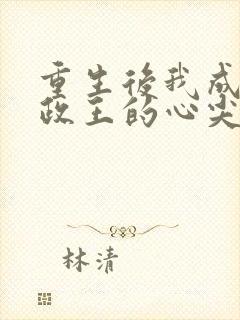 重生後我成
政王的心尖
林清